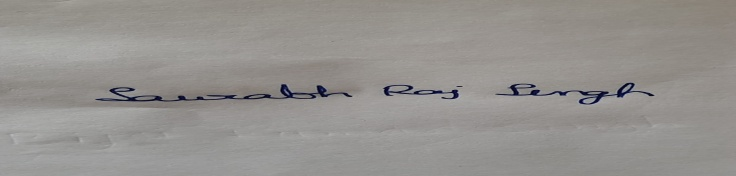 Saurabh Raj Singh